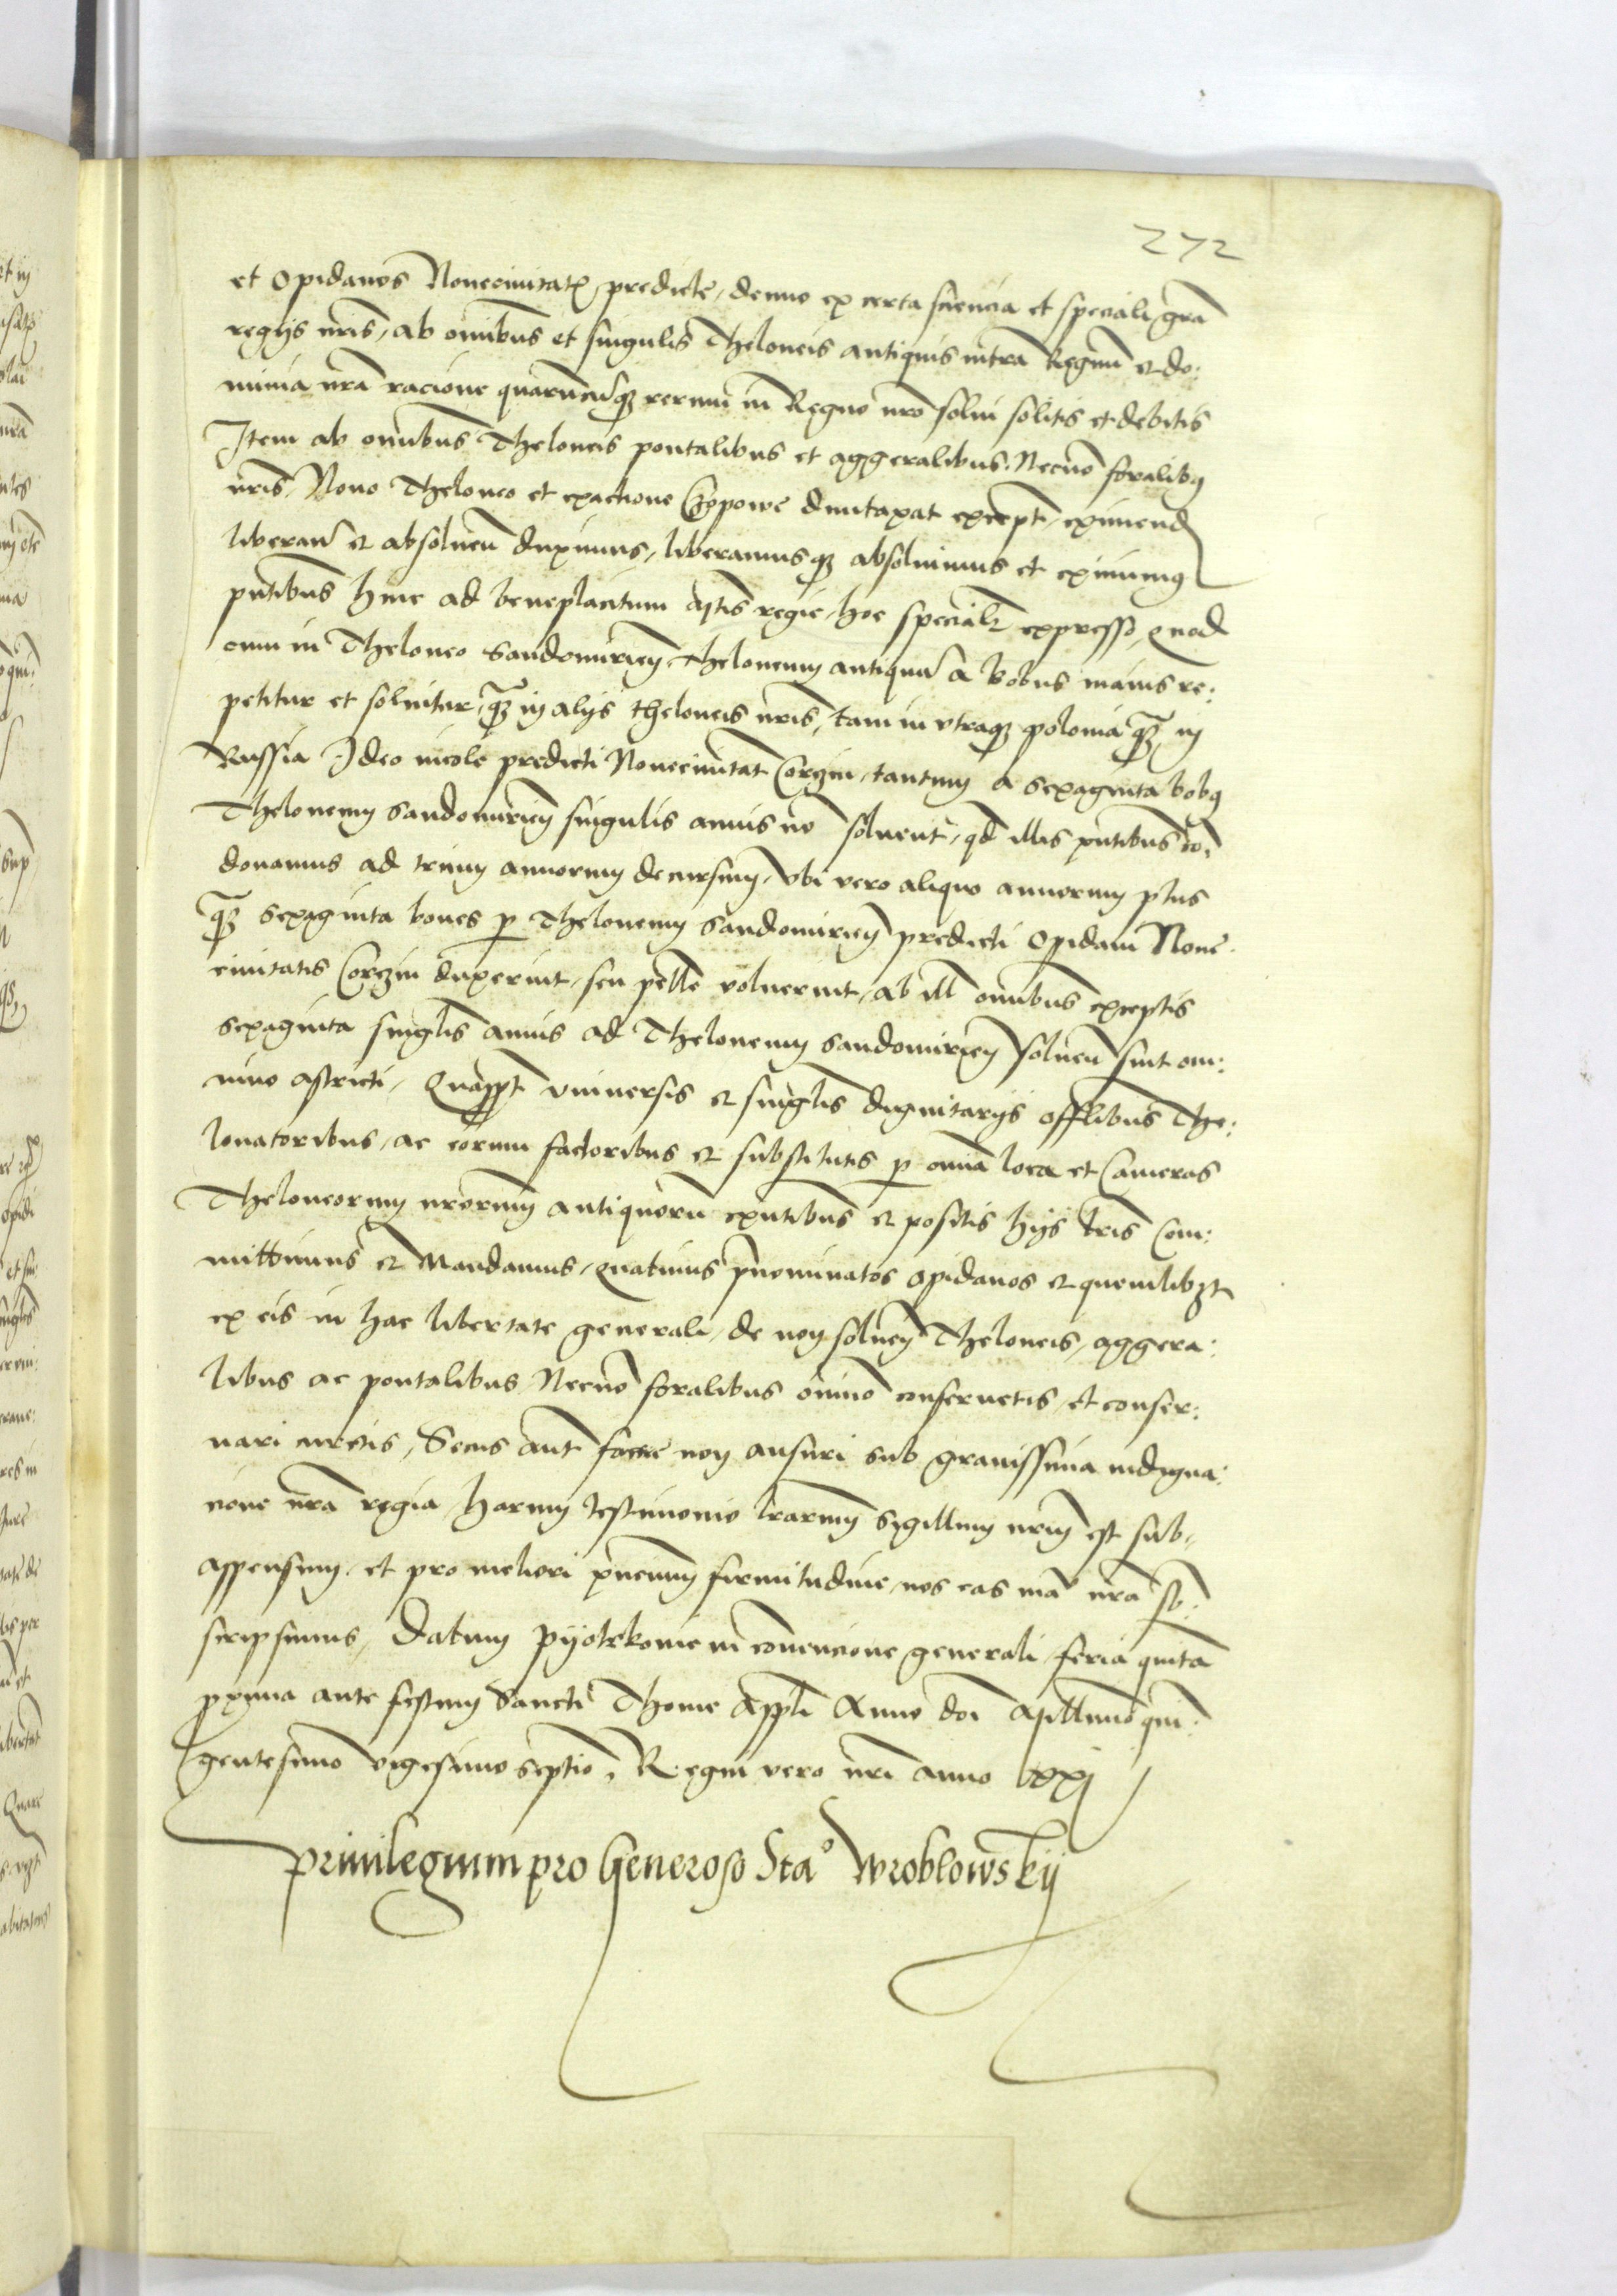 272
et opidanos Nouecivitatis predicte, denuo ex certa sciencia et speciali gra
regijs nris, ab omibus et singulis Theloneis antiquis intra Regnu et do:
minia nra racione quarucumq rerum in Regno nro solui solitis et debitis
Item ab omnibus Theloneis pontalibus et aggeralibus. Necno foralibus
nris, Nouo Theloneo et exactione Czopowe duntaxat except, eximend
liberan et absoluen duximus, liberamusq absoluimus et eximimus
pntibus hinc ad beneplacitum Mtis regie, hoc specialr expresso, quod
cum in Theloneo Sandomirien Theloneum antiquu a bobus maius re:
petitur et soluitur, q in alijs theloneis nris, tam in vtraq polonia q in
Russia Ideo incole predicti Nouecivitat Corczin, tantum a sexaginta bobus
Theloneum Sandomirien singulis annis no soluent, qd illis pntibus con
donamus ad trium annorum decursum, vbi vero aliquo annorum plus
q sexaginta boues p Theloneum Sandomirien predicti opidani Noue
civitatis Corczin duxerint, seu pelle voluerint, ab ill omibus exceptis
sexaginta singlis annis ad Theloneum Sandomirien soluen sint om:
nino astricti, Quappt vniuersis et singlis dignitarijs offlibus The:
lonatoribus, ac eorum factoribus et substitutis p omia loca et Cameras
Theloneorum nrorum antiquoru exntibus et positis hijs lris Com:
mittimus et Mandamus, quatinus pnominatos opidanos et quemlibzt
ex eis in hac libertate generali, de non soluen Theloneis, aggera:
libus ac pontalibus Necno foralibus omino conseruetis et conser:
uari curetis, Secus aut facere non ausuri sub grauissima indigna:
cione nra regia, harum testimonio lrarum Sigillum nrum est sub
appensum, et pro meliori pncium firmitudine, nos eas manu nra sb:
scripsimus, Datum Pijotrkouie in conuencione generali, feria quita
pxima ante festum Sancti Thome Appli Anno doi Millimo quin:
gentesimo vigesimo septio, Regni vero nri anno xxj
Priuilegium pro Generoso Stao Wroblowskij